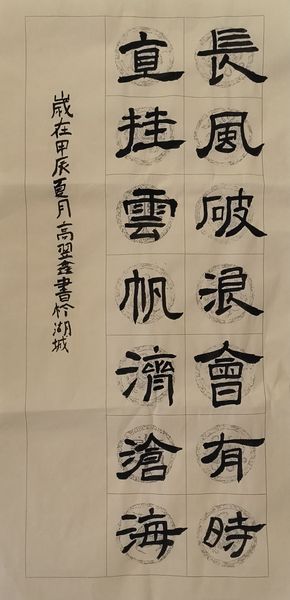 長風破浪會有時
直挂雲帆濟滄海
歲在甲辰夏月高翌鑫書於湖城